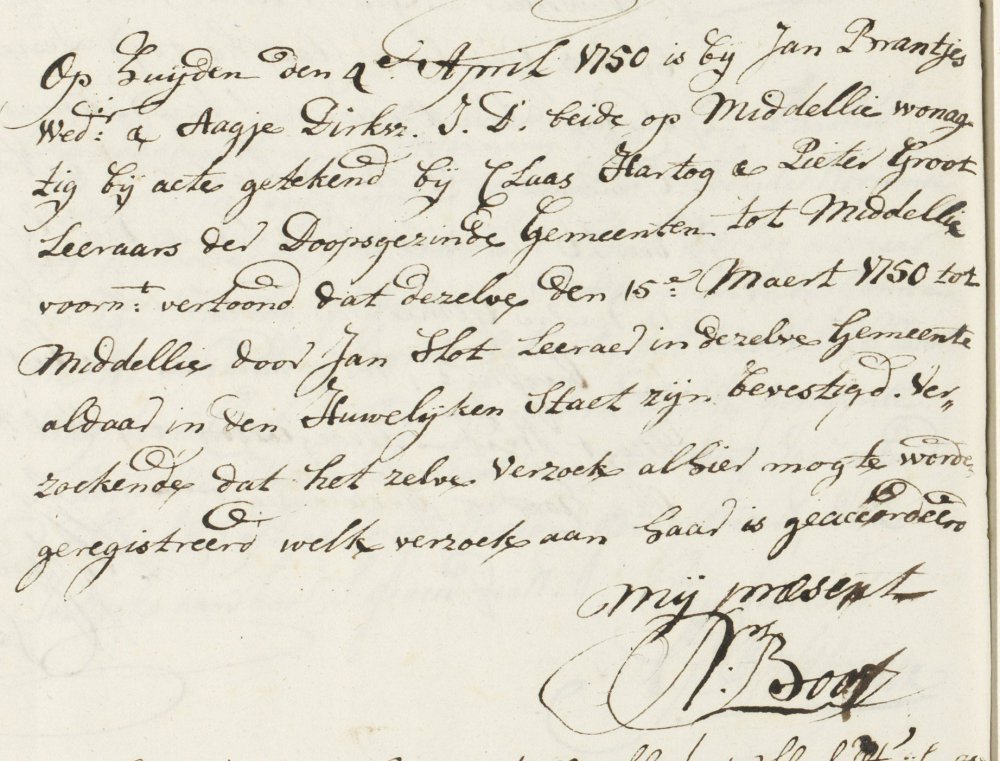 Op huijden den 4e. April 1750 is bij Jan Brantjes
Wedr. & Aagje Dirksz. J. D. beide op Middellie wonag
tig bij acte getekend bij Claas Hartog & Pieter Groot
Leeraars der Doopsgezinde Gemeenten tot Middellie
voornt: vertoond dat dezelve den 15e. Maert 1750 tot
Middellie door Jan Slot Leeraer in dezelve Gemeente
aldaar in den Huwelijken Staet zijn bevestigd. Ver„
zoekende dat het zelve verzoek alhier mogte worde
geregistreerd welk verzoek aan haar is geaccordeerd
Mij present
Boot